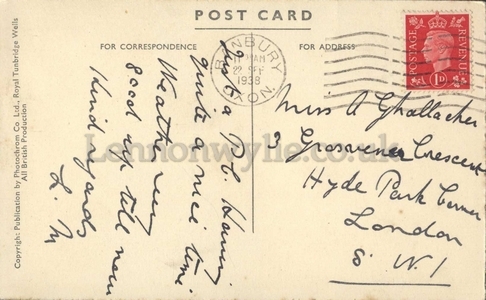 POST CARD
FOR CORRESPONDENCE
FOR ADDRESS
BANBURY
AM
1938
OXON.
POSTAGE
REVENUE
1D
Just a P.C. Having
quite a nice time
Weather very
good up till now
Kind regards
L. M
Miss A Ghallacher
3 Grosvenor Crescent
Hyde Park Corner
London
S.W.1
Copyright: Publication by Photochrom Co Ltd., Royal Tunbridge Wells
All British Production
Lennonwylie.co.uk